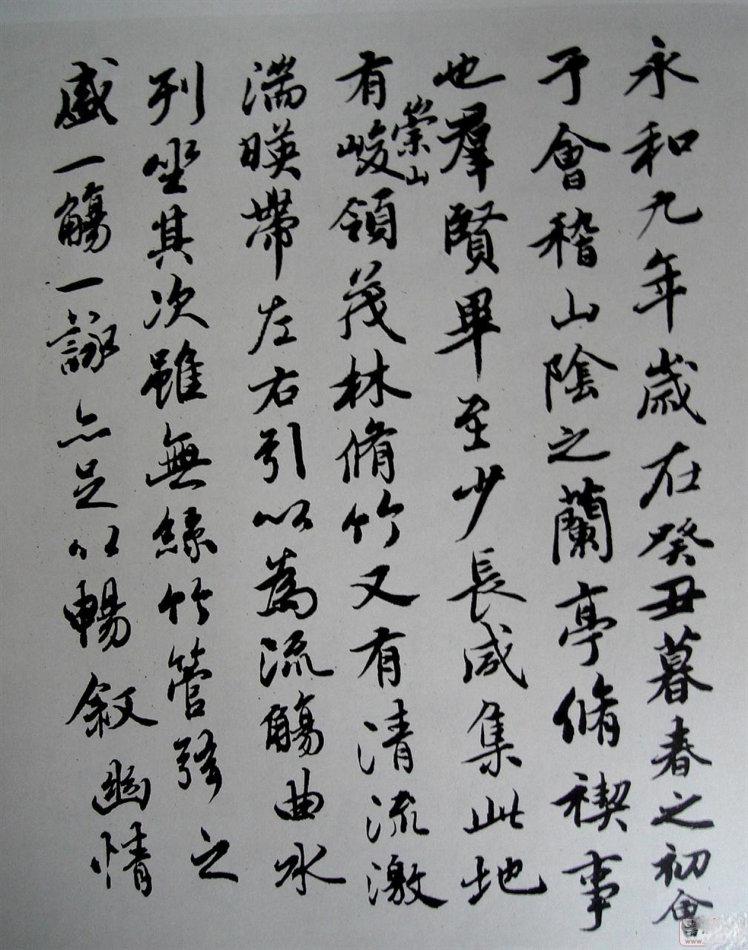 永和九年歲在癸丑暮春之初會
于會稽山陰之蘭亭脩禊事
也羣賢畢至少長咸集此地
有崇山峻領茂林脩竹又有清流激
湍暎帶左右引以為流觴曲水
列坐其次雖無絲竹管弦之
盛一觴一詠亦足以暢敘幽情
www.